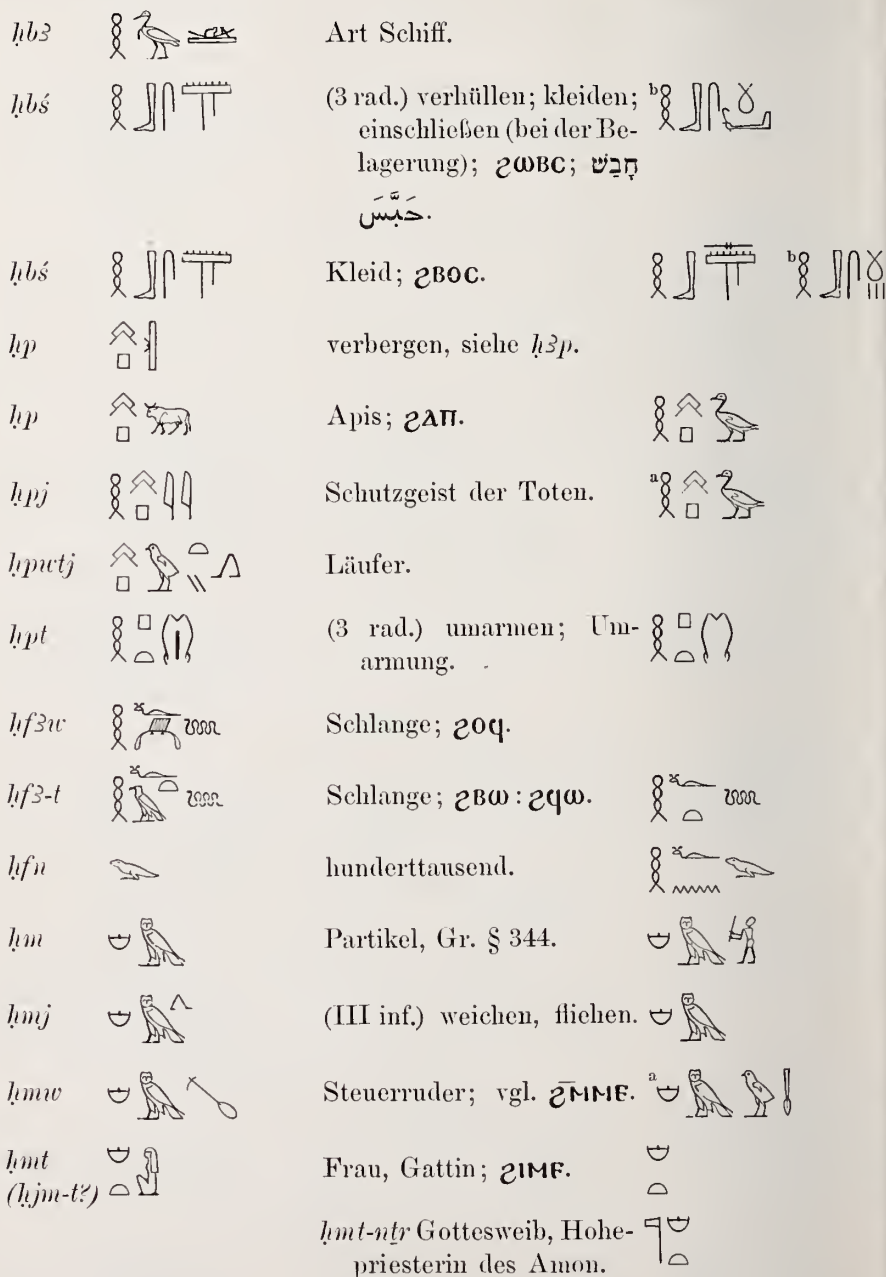 ḥbꜣ Art Schiff.
ḥbś (3 rad.) verhüllen; kleiden; b
einschließen (bei der Be-
lagerung); ϩⲱⲃⲥ; חָבַשׁ
حَبَّسَ.
ḥbś Kleid; ϩⲃⲟⲥ. b
ḥp verbergen, siehe ḥꜣp.
ḥp Apis; ϩⲁⲡ.
ḥpj Schutzgeist der Toten. a
ḥpwtj Läufer.
ḥpt (3 rad.) umarmen; Um-
armung.
ḥfꜣw Schlange; ϩⲟϥ.
ḥfꜣ-t Schlange; ϩⲃⲱ : ϩϥⲱ.
ḥfn hunderttausend.
ḥm Partikel, Gr. § 344.
ḥmj (III inf.) weichen, fliehen.
ḥmw Steuerruder; vgl. ϩⲙ̄ⲙⲉ. a
ḥmt Frau, Gattin; ϩⲓⲙⲉ.
(ḥjm-t?)
ḥmt-nṯr Gottesweib, Hohe-
priesterin des Amon.